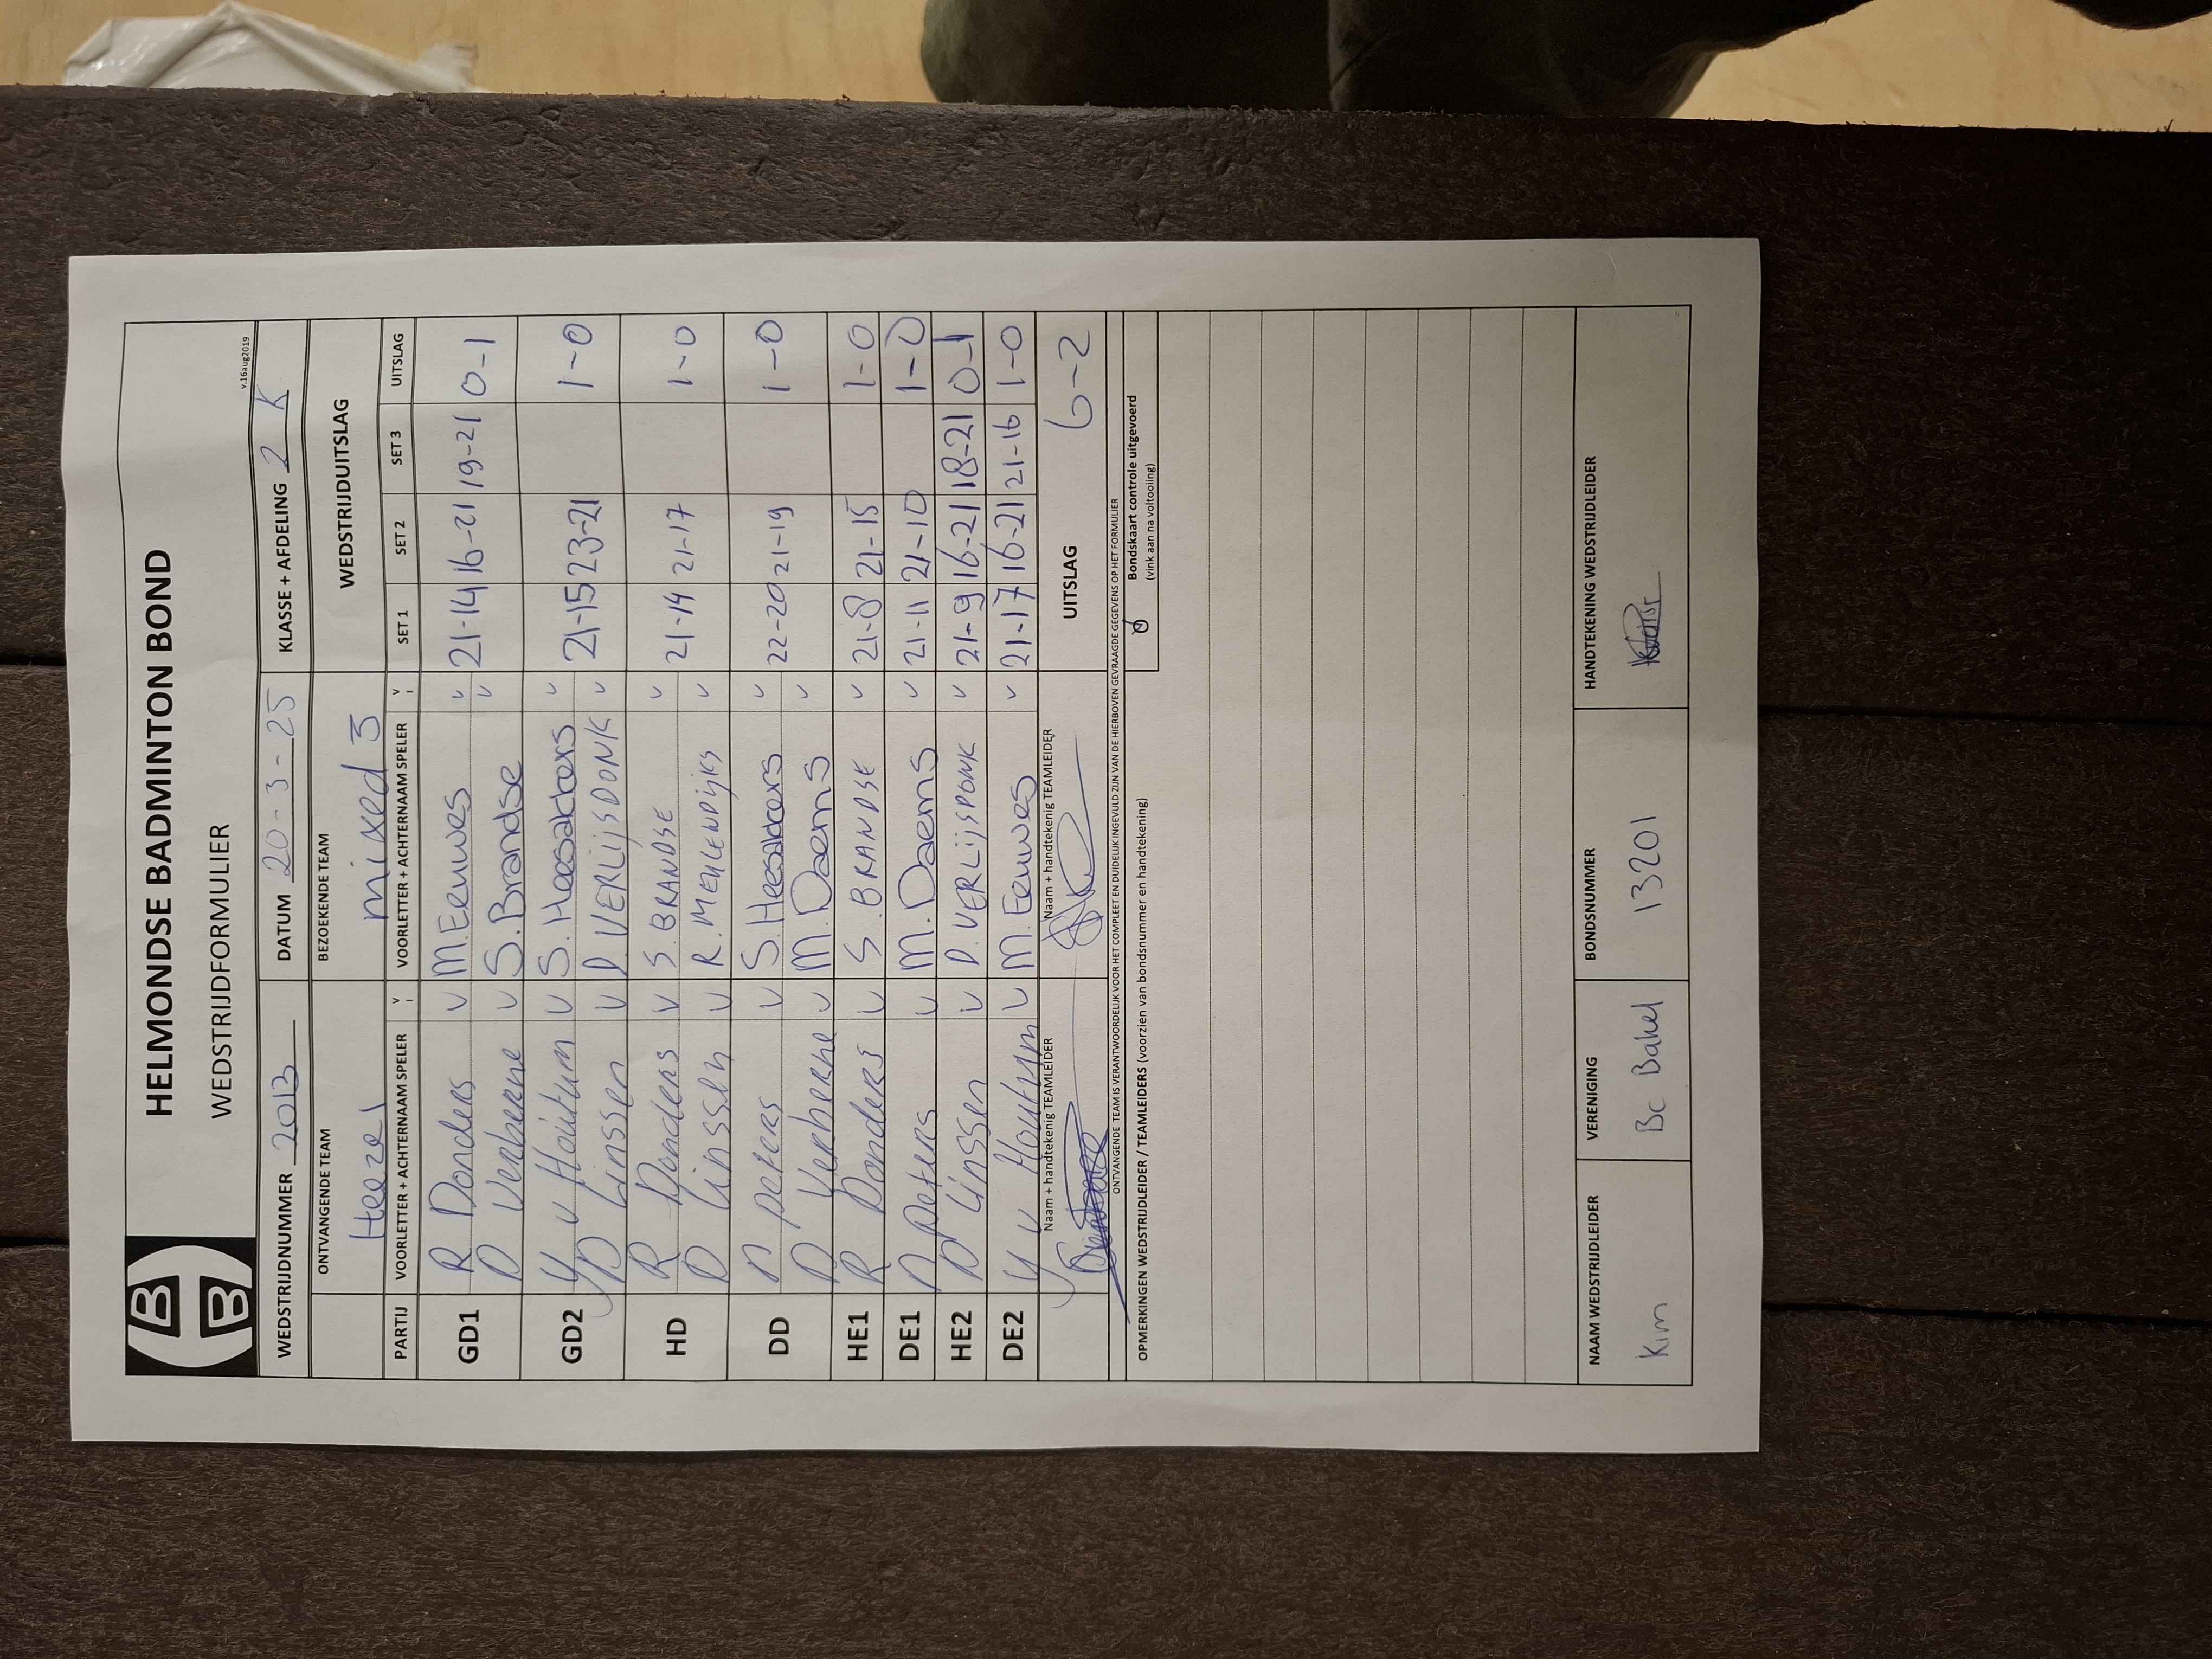 HELMONDSE BADMINTON BOND
WEDSTRIJDFORMULIER
v.16aug2019
WEDSTRIJDNUMMER 2013 DATUM 20-3-25 KLASSE + AFDELING 2 K
ONTVANGENDE TEAM BEZOEKENDE TEAM WEDSTRIJDUITSLAG
Heeze 1 mixed 3
PARTIJ VOORLETTER + ACHTERNAAM SPELER V VOORLETTER + ACHTERNAAM SPELER V SET 1 SET 2 SET 3 UITSLAG
GD1 R Donders V M. Eeuwes V 21-14 16-21 19-21 0-1
D Verberne V S. Brandse V
GD2 Y v Houtum V S. Heesakkers V 21-15 23-21 1-0
D Linssen V D VERLIJSDONK V
HD R Donders V S. BRANDSE V 21-14 21-17 1-0
D Linssen V R. MEULENDIJKS V
DD N Peters V S. Heesakkers V 22-20 21-19 1-0
D Verberne V M. Daems V
HE1 R Donders V S. BRANDSE V 21-8 21-15 1-0
DE1 N Peters V M. Daems V 21-11 21-10 1-0
HE2 D Linssen V D. VERLIJSDONK V 21-9 16-21 18-21 0-1
DE2 Y v Houtum V M. Eeuwes V 21-17 16-21 21-16 1-0
Naam + handtekenig TEAMLEIDER Naam + handtekenig TEAMLEIDER UITSLAG 6-2
ONTVANGENDE TEAM IS VERANTWOORDELIJK VOOR HET COMPLEET EN DUIDELIJK INGEVULD ZIJN VAN DE HIERBOVEN GEVRAAGDE GEGEVENS OP HET FORMULIER
OPMERKINGEN WEDSTRIJDLEIDER / TEAMLEIDERS (voorzien van bondsnummer en handtekening) Bondskaart controle uitgevoerd
(vink aan na voltooiing)
NAAM WEDSTRIJDLEIDER VERENIGING BONDSNUMMER HANDTEKENING WEDSTRIJDLEIDER
Kim Bc Bakel 13201